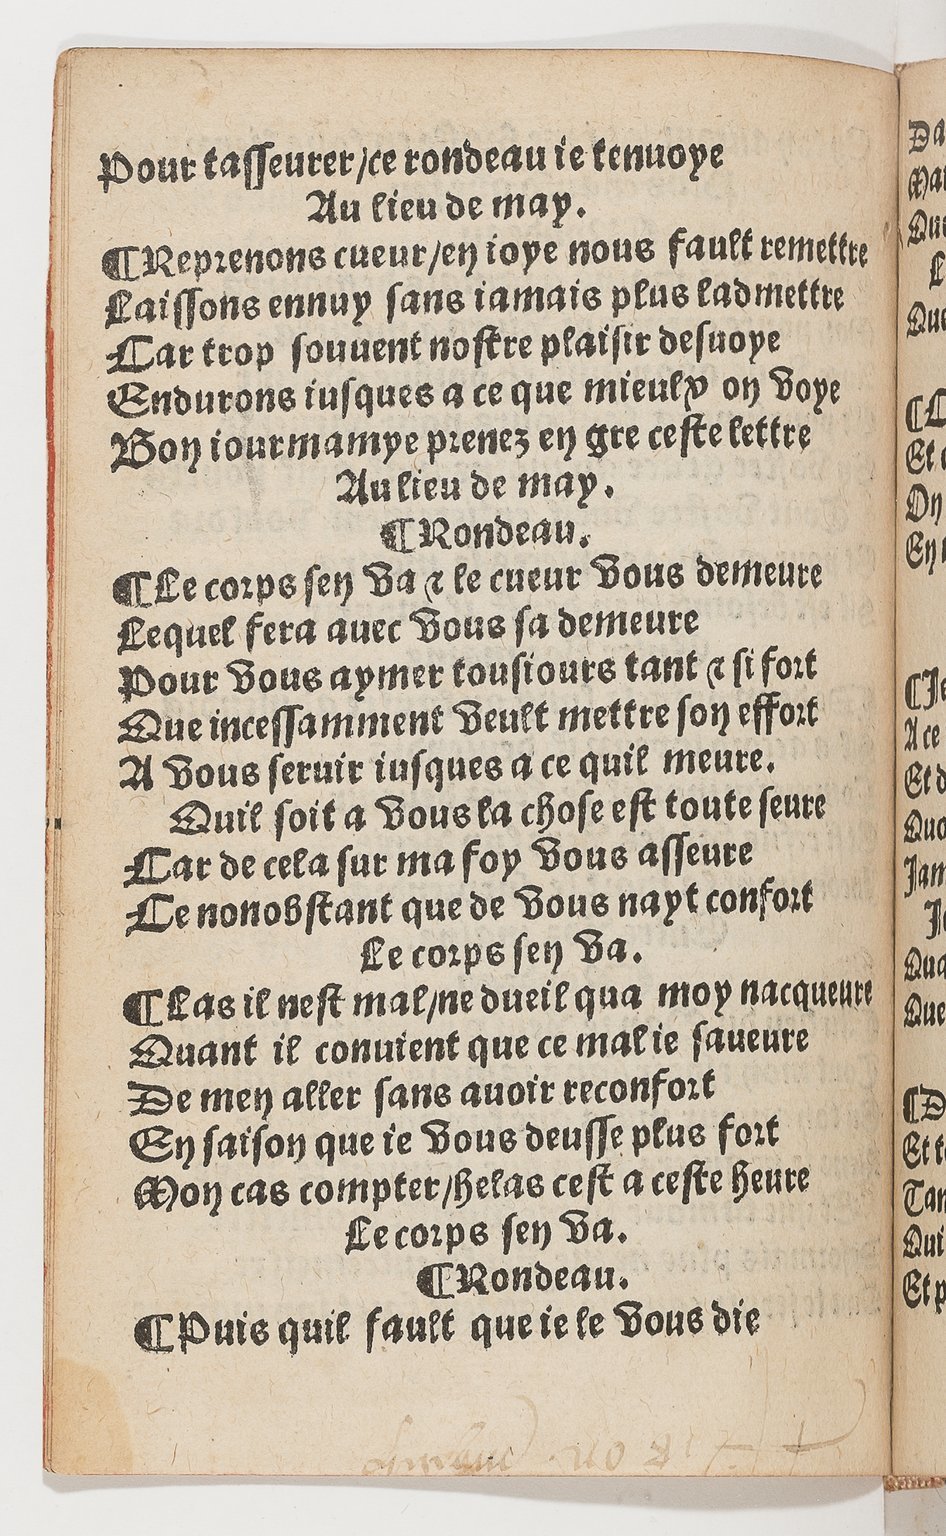 Pour tasseurer/ce rondeau ie tenuoye
Au lieu de may.
¶Reprenons cueur/en ioye nous fault remettre
Laissons ennuy sans iamais plus ladmettre
Car trop souuent nostre plaisir desuoye
Endurons iusques a ce que mieulx on voye
Bon iour mamye prenez en gre ceste lettre
Au lieu de may.
¶Rondeau.
¶Le corps sen va ⁊ le cueur vous demeure
Lequel fera auec vous sa demeure
Pour vous aymer tousiours tant ⁊ si fort
Que incessamment veult mettre son effort
A vous seruir iusques a ce quil meure.
Quil soit a vous la chose est toute seure
Car de cela sur ma foy vous asseure
Ce nonobstant que de vous nayt confort
Le corps sen va.
¶Las il nest mal/ne dueil qua moy nacqueure
Quant il conuient que ce mal ie saueure
De men aller sans auoir reconfort
En saison que ie vous deusse plus fort
Mon cas compter/helas cest a ceste heure
Le corps sen va.
¶Rondeau.
¶Puis quil fault que ie le vous die